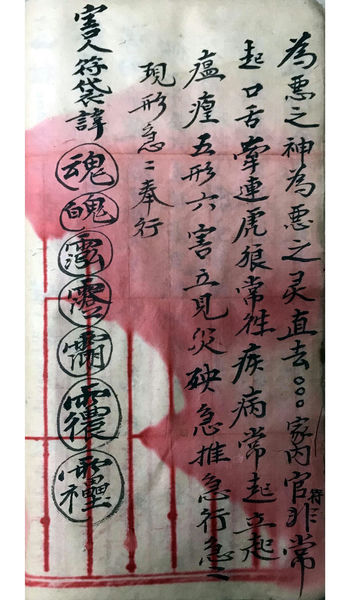 為惡之神為惡之灵直去○○○家內官符非常
起口舌牽連虎狼常徃疾病常起立起
瘟瘽五形六害立見災殃急推急行急〻
現形急〻奉行
害人符袋諱
魂魄